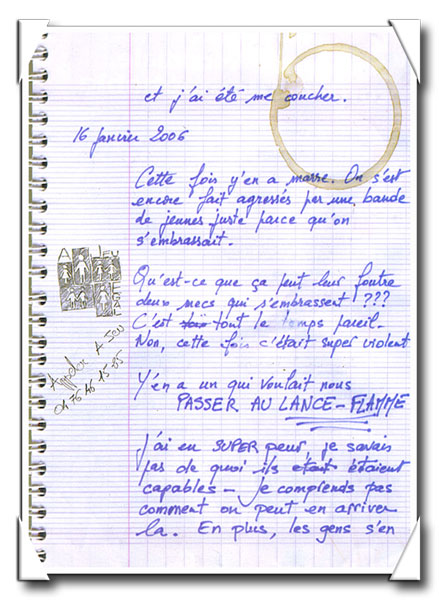 et j'ai été me coucher.
16 janvier 2006
Cette fois y'en a marre. On s'est
encore fait agressés par une bande
de jeunes juste parce qu'on
s'embrassait.
A JEU
EGAL
Qu'est-ce que ça peut leur foutre
deux mecs qui s'embrassent ???
C'est tout le temps pareil.
Non, cette fois c'était super violent
Y'en a un qui voulait nous
PASSER AU LANCE-FLAMME
J'ai eu SUPER peur, je savais
pas de quoi ils était étaient
capables - je comprends pas
comment on peut en arriver
la. En plus, les gens s'en